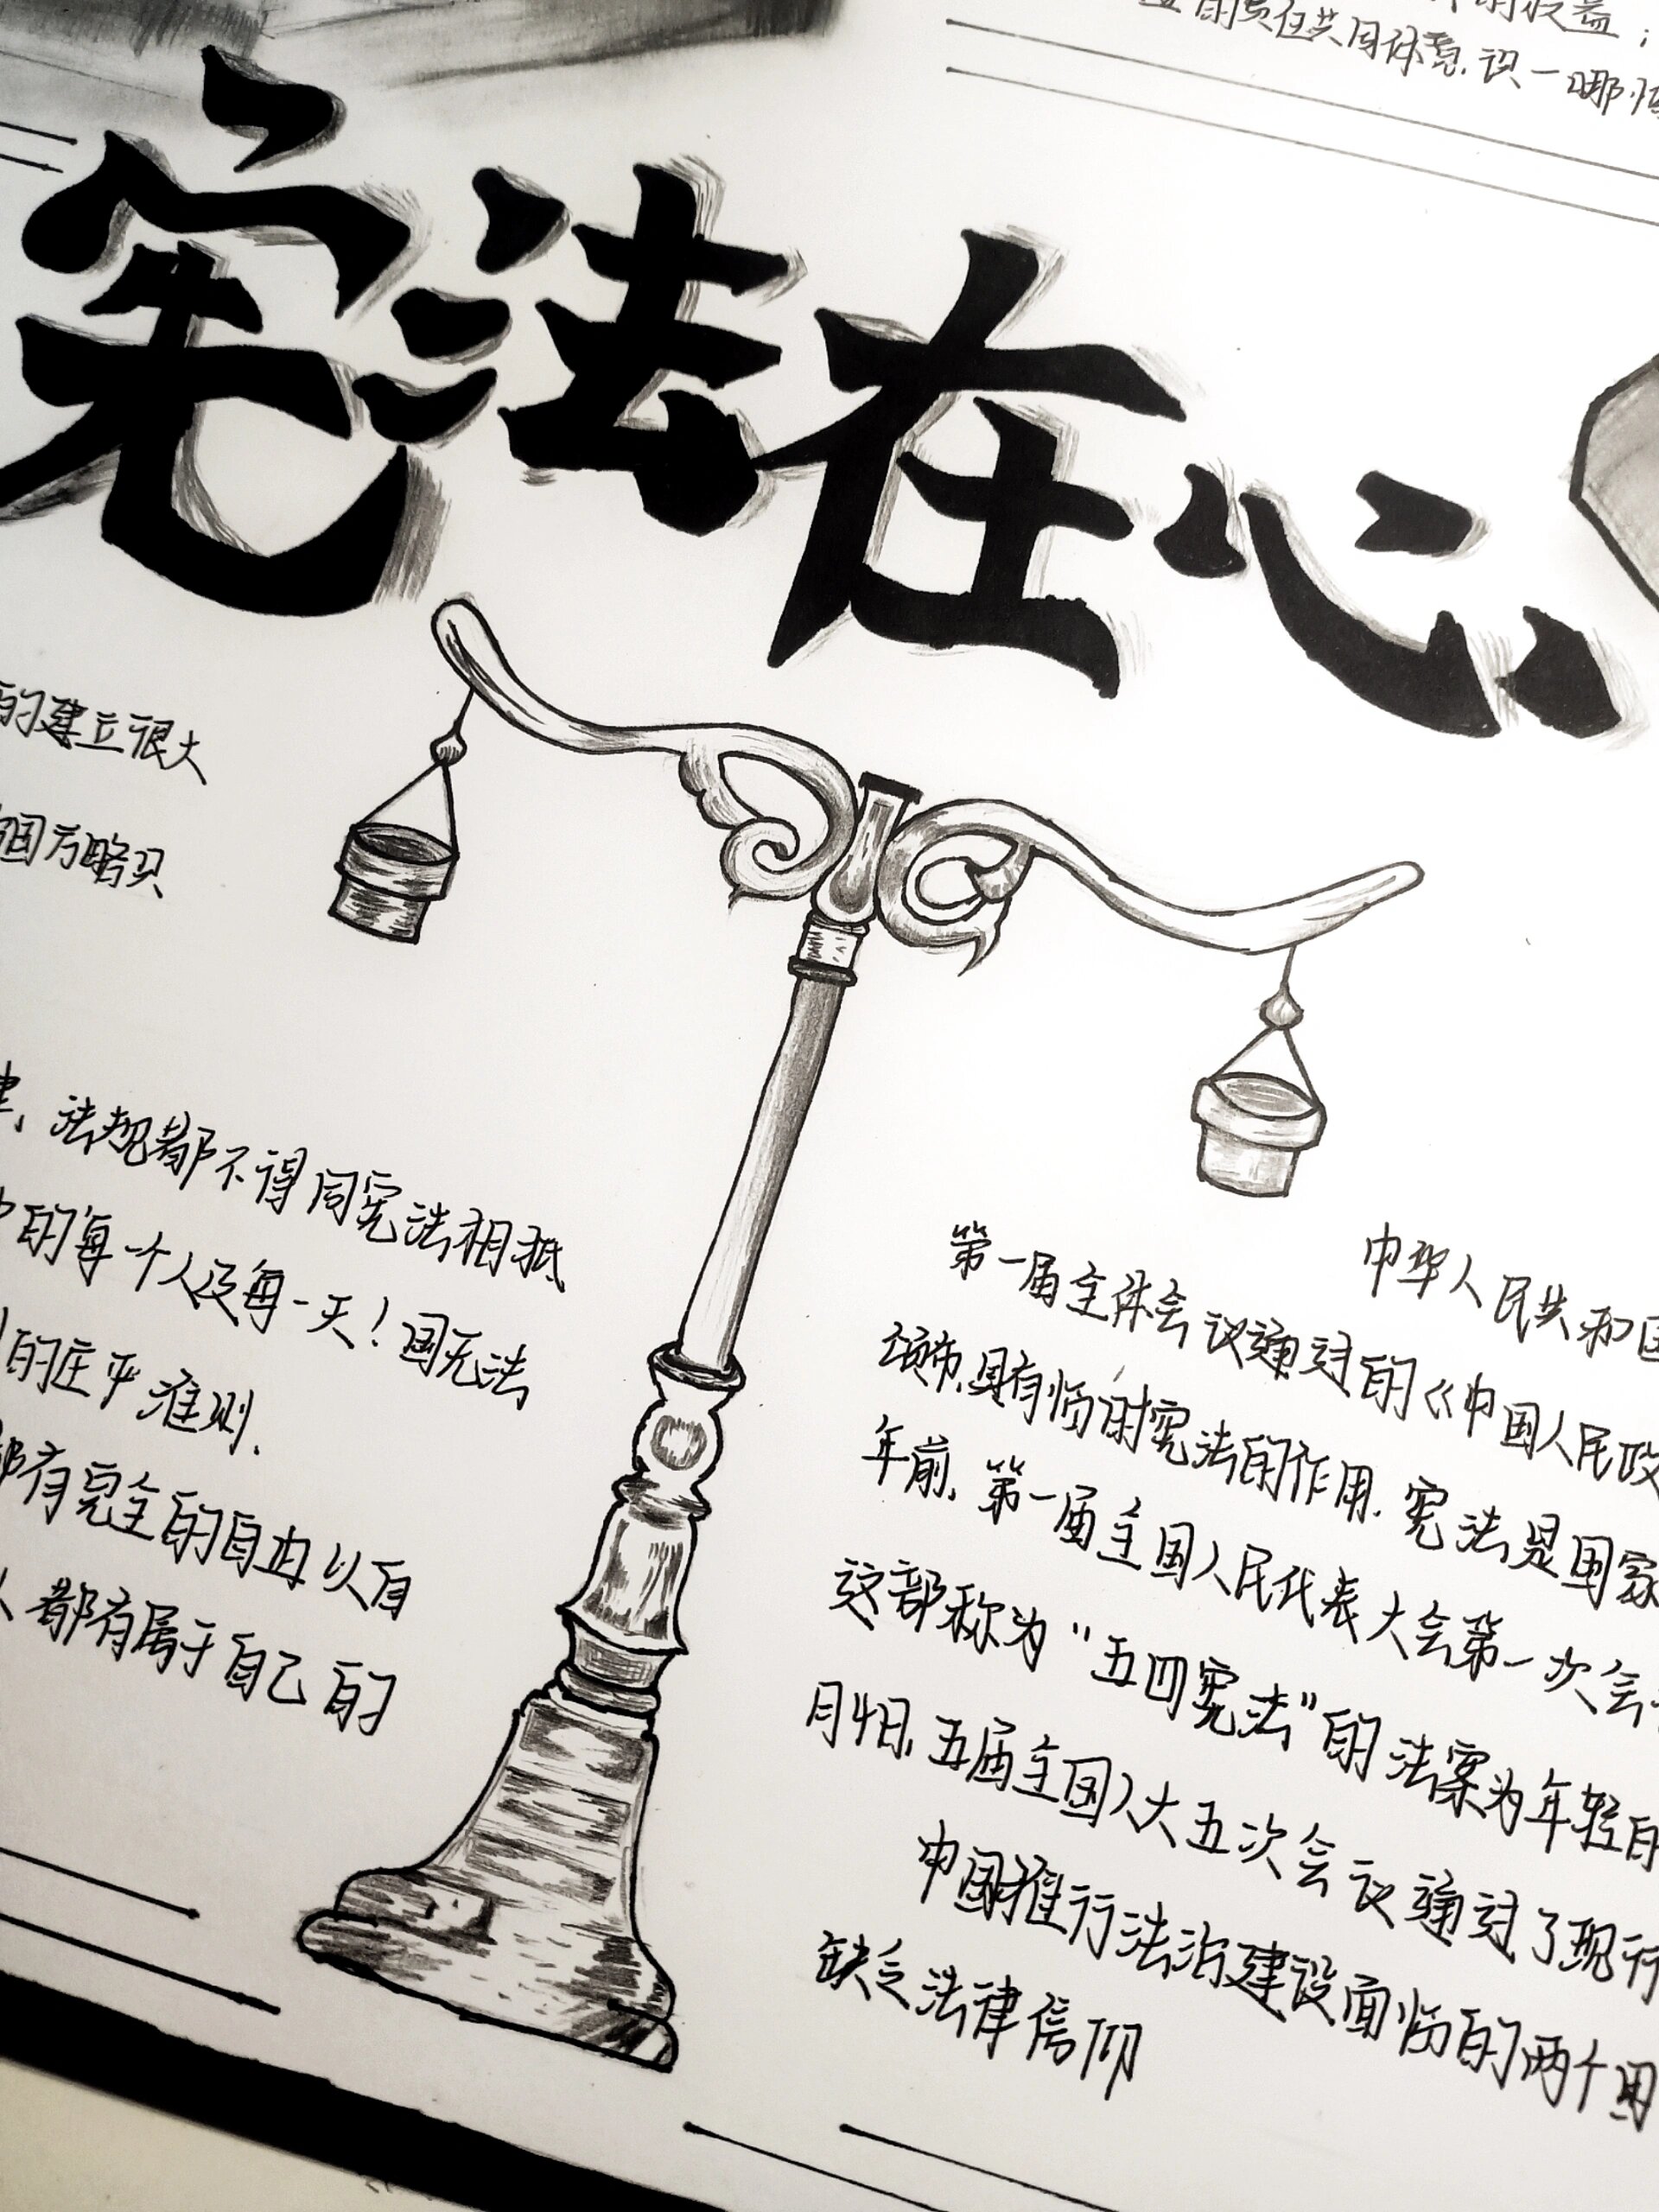 的权益；
的责任共同体意识一哪怕
宪法在心
的建立很大
国方略只
法规都不得同宪法相抵
的每一个人及每一天！国无法
的庄严准则.
都有完全的自由以自
都有属于自己的
中华人民共和国
第一届全体会议通过的《中国人民政
颁布,具有临时宪法的作用.宪法是国家
年前,第一届全国人民代表大会第一次会
这部称为“五四宪法”的法案为年轻的
月4日,五届全国人大五次会议通过了现行
中国推行法治建设面临的两个困
缺乏法律信仰